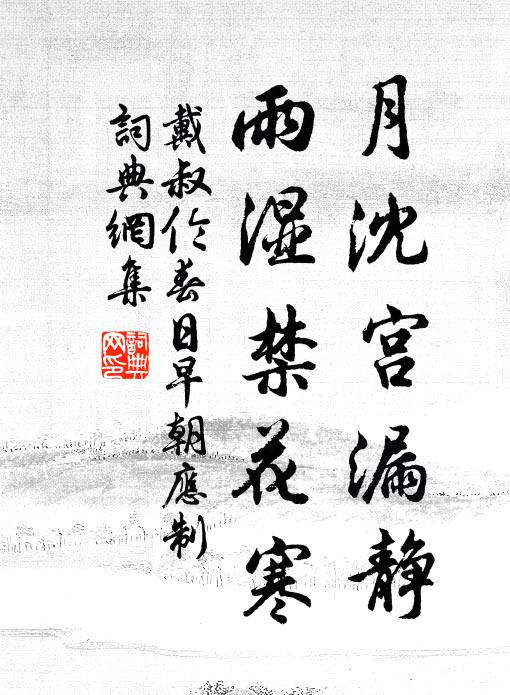 月沈宫漏静
雨湿禁花寒
戴叔伦春日早朝應制
詞典網集
詞典
网印